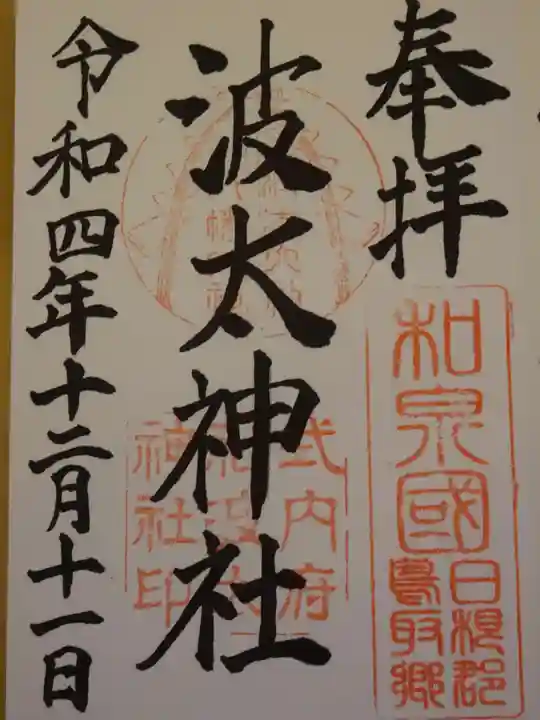 奉拝
和泉國
日根郡
鳥取郷
波太神社
式内府
社波太
神社印
令和四年十二月十一日